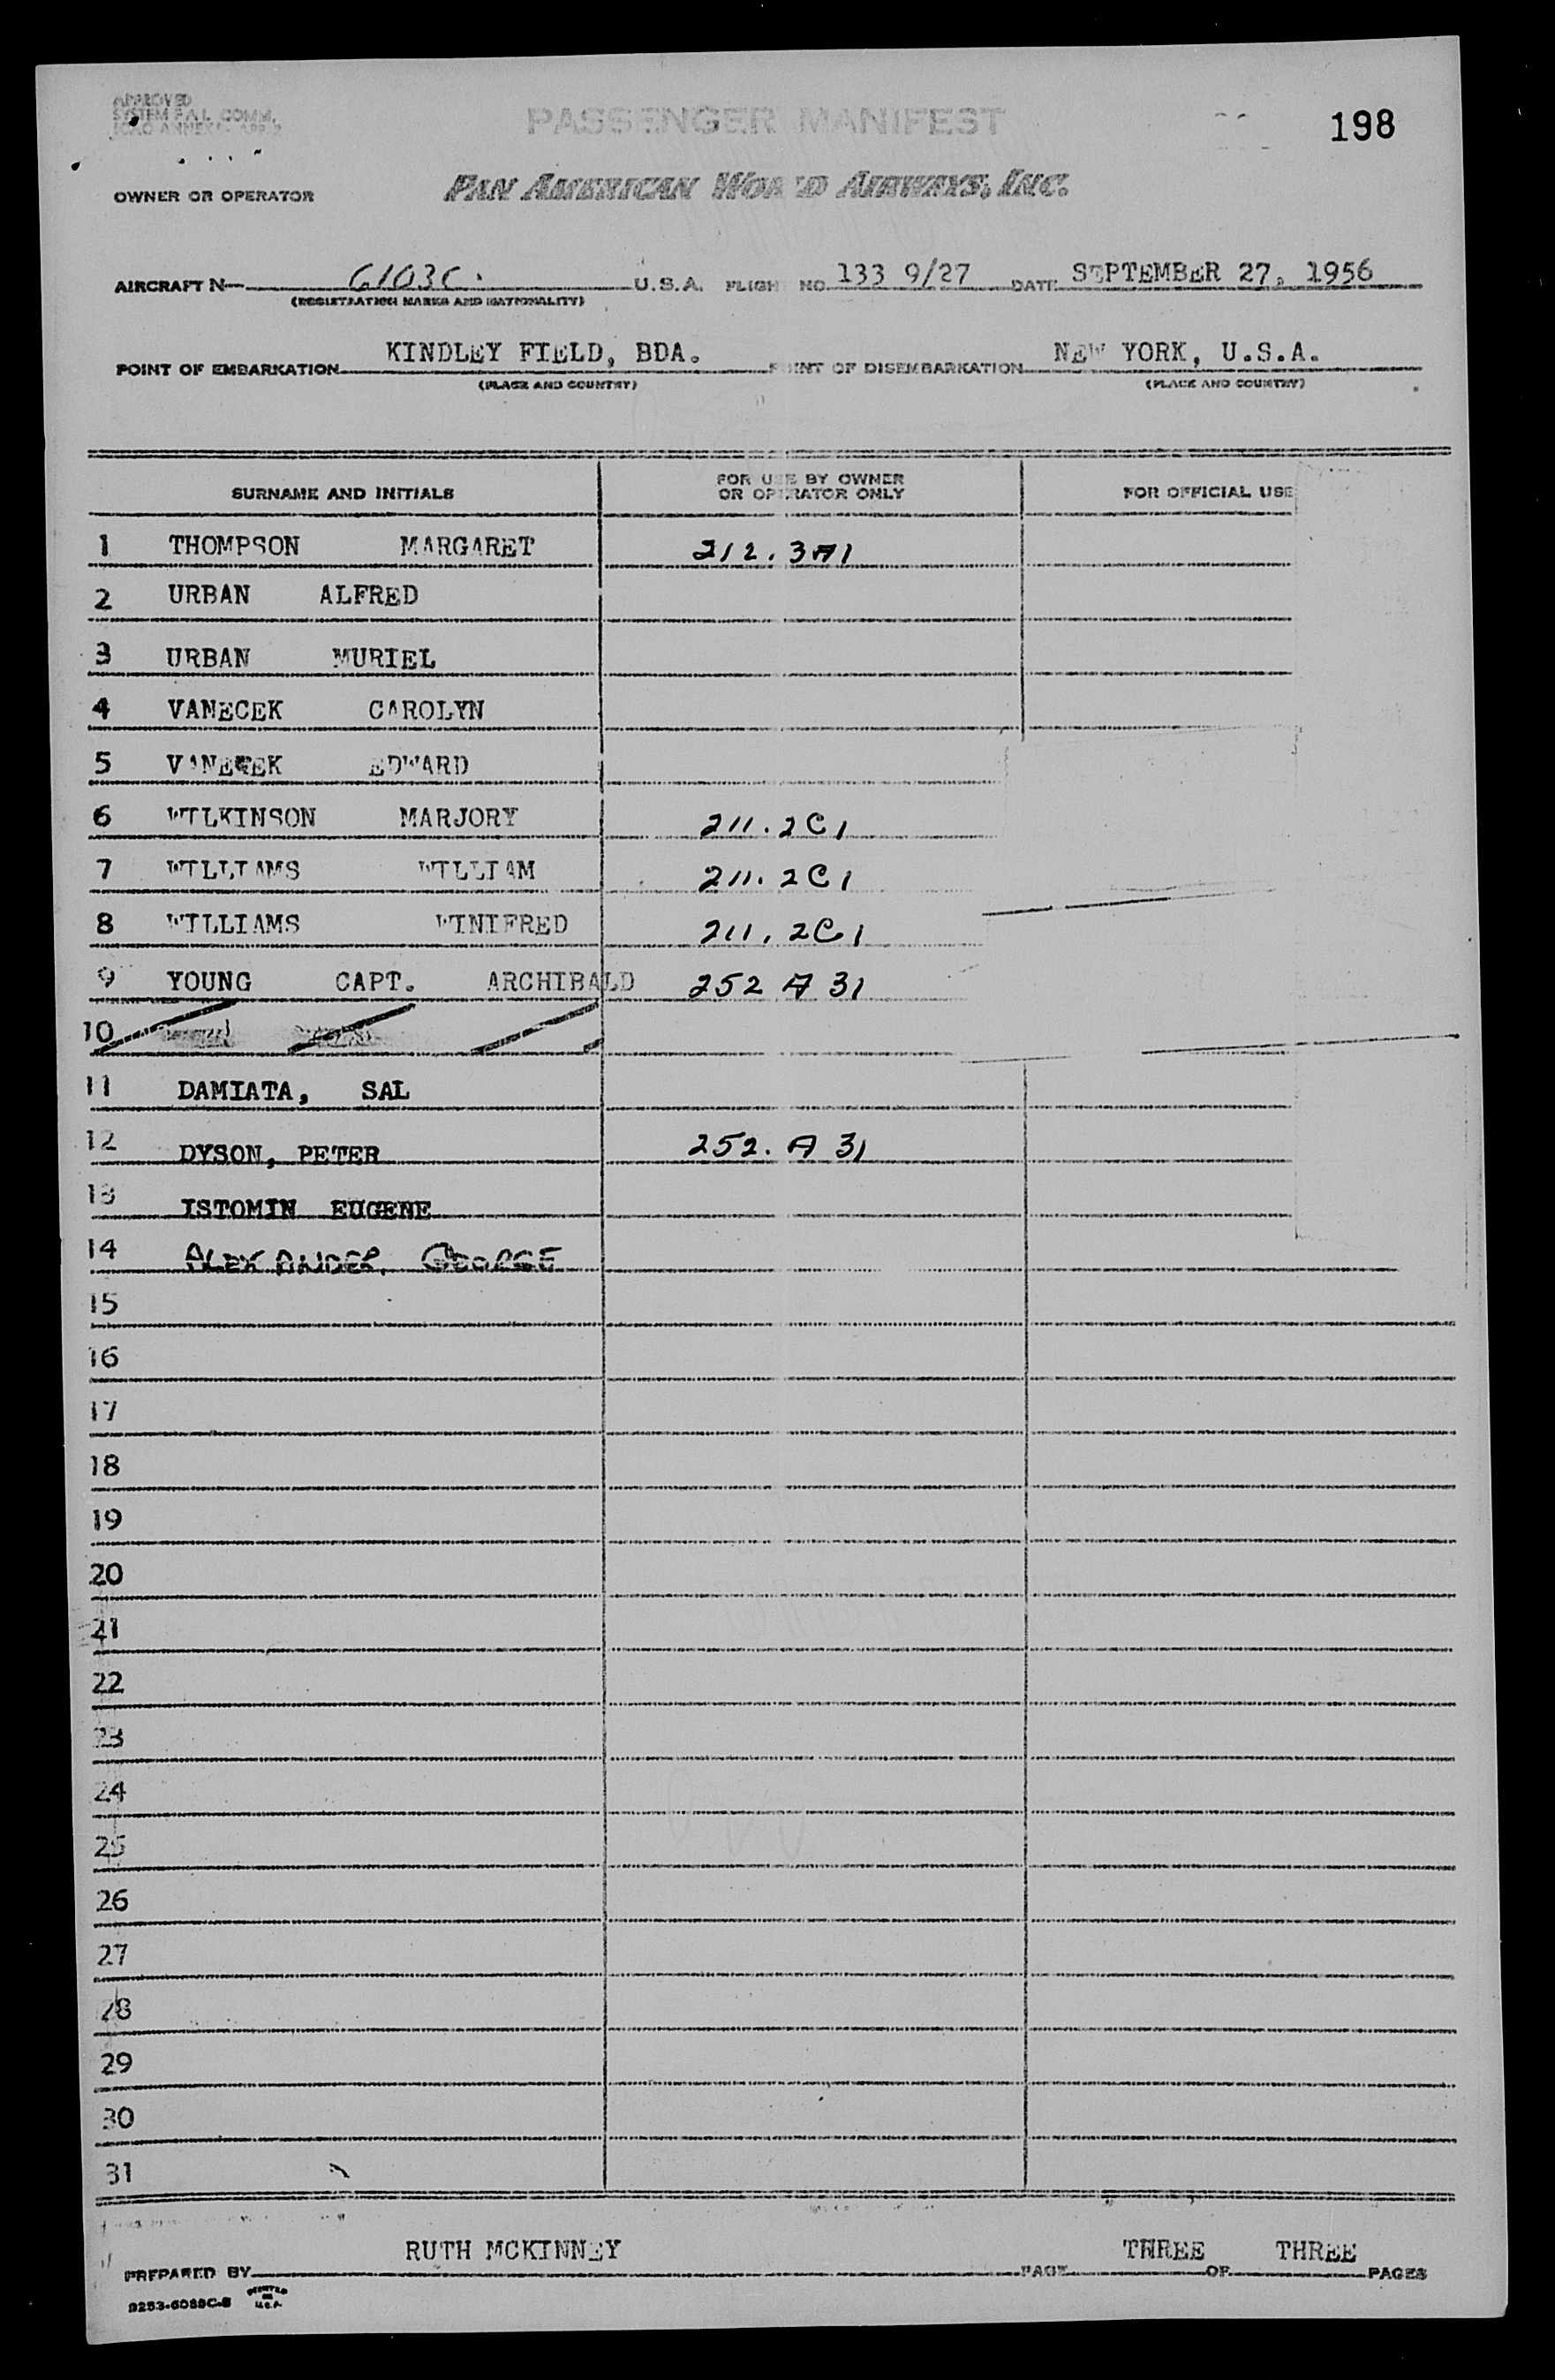 APPROVED
SYSTEM F.A.L. COMM.
ICAO ANNEX 9 APP. 2
PASSENGER MANIFEST
198
OWNER OR OPERATOR PAN AMERICAN WORLD AIRWAYS, INC.
AIRCRAFT N— 6103C. U.S.A. FLIGHT NO. 133 9/27 DATE SEPTEMBER 27, 1956
(REGISTRATION MARKS AND NATIONALITY)
POINT OF EMBARKATION KINDLEY FIELD, BDA. POINT OF DISEMBARKATION NEW YORK, U.S.A.
(PLACE AND COUNTRY) (PLACE AND COUNTRY)
SURNAME AND INITIALS FOR USE BY OWNER OR OPERATOR ONLY FOR OFFICIAL USE
1 THOMPSON MARGARET 212.3A1
2 URBAN ALFRED
3 URBAN MURIEL
4 VANECEK CAROLYN
5 VANECEK EDWARD
6 WILKINSON MARJORY 211.2C1
7 WILLIAMS WILLIAM 211.2C1
8 WILLIAMS WINIFRED 211.2C1
9 YOUNG CAPT. ARCHIBALD 252 A 31
10
11 DAMIATA, SAL
12 DYSON, PETER 252. A 31
13 ISTOMIN EUGENE
14 ALEXANDER, GEORGE
15
16
17
18
19
20
21
22
23
24
25
26
27
28
29
30
31
PREPARED BY RUTH MCKINNEY PAGE THREE OF THREE PAGES
PRINTED IN U.S.A.